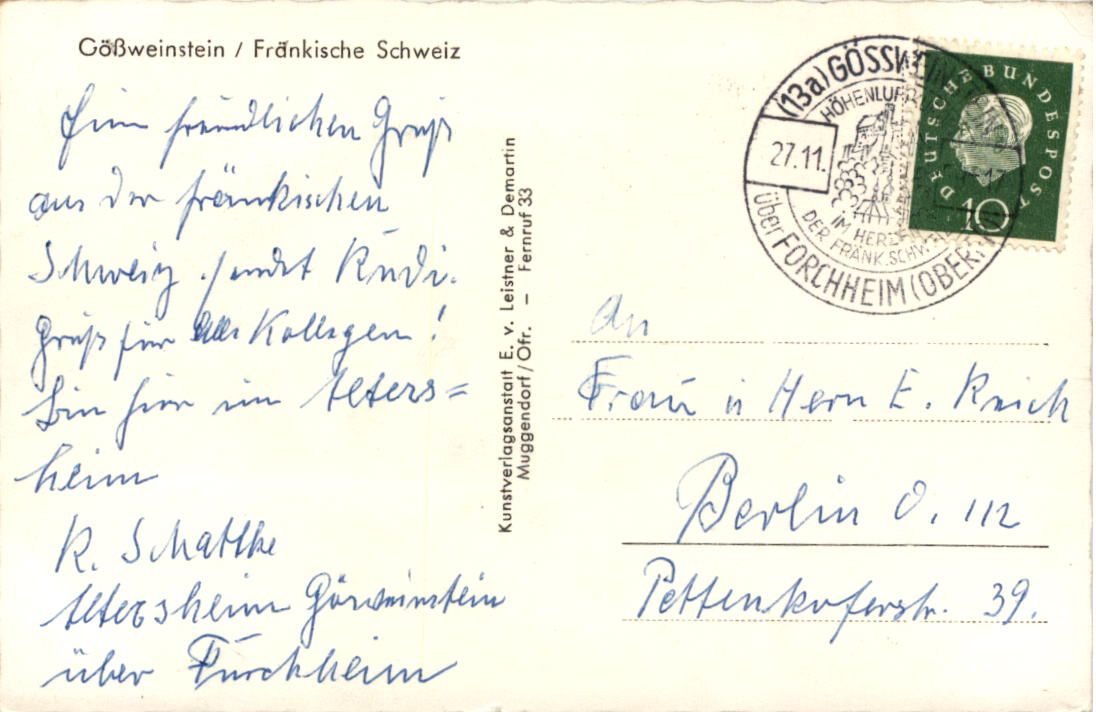 Gößweinstein / Fränkische Schweiz
Einen freundlichen Gruß
aus der fränkischen
Schweiz sendet Rudi.
Gruß für alle Kollegen!
Bin hier im Alters=
heim
R. Schattke
Altersheim Gösweinstein
über Forchheim
Kunstverlagsanstalt E. v. Leistner & Demartin
Muggendorf/Ofr. – Fernruf 33
(13a) GÖSSWEIN
HÖHENLUF
27.11.
IM HERZ
DER FRÄNK.SCHW
über FORCHHEIM (OBERF
DEUTSCHE BUNDESPOST
10
An
Frau u Herrn E. Reich
Berlin O. 112
Pettenkoferstr. 39.